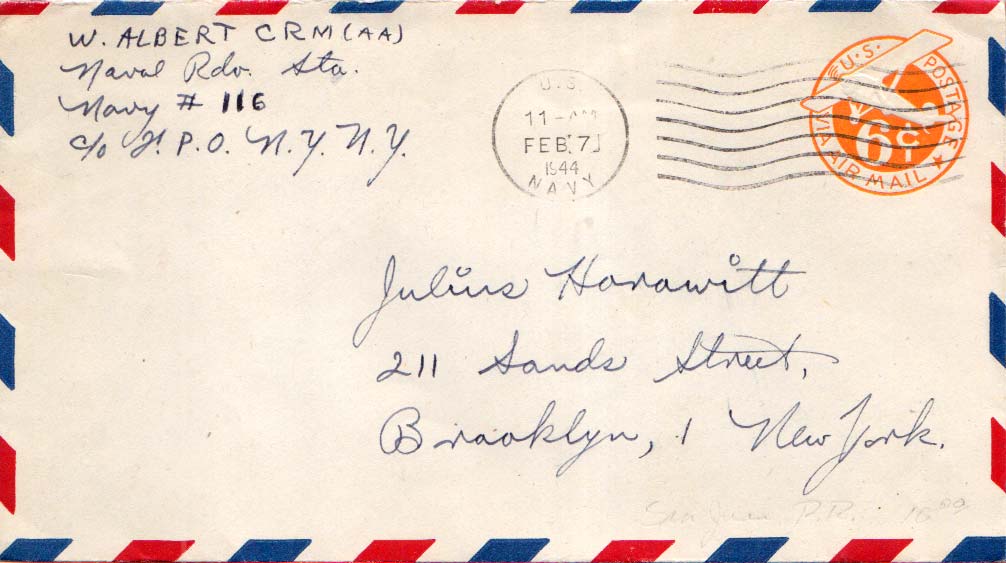 W. ALBERT CRM (AA)
Naval Rdo. Sta.
Navy # 116
c/o F. P. O. N. Y. N. Y.
U.S.
11-AM
FEB 7
1944
NAVY
U.S. POSTAGE
6¢
VIA AIR MAIL
Julius Horowitt
211 Sands Street,
Brooklyn, 1 New York.
San Juan P.R. 18 00